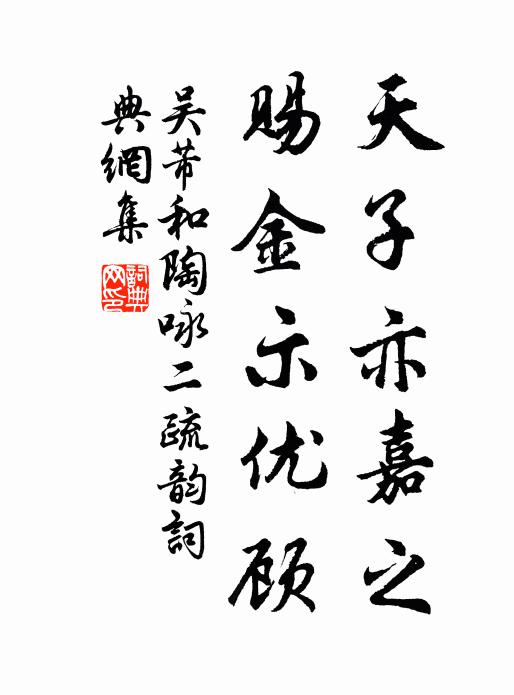 天子亦嘉之
赐金示优顾
吴芾和陶咏二疏韵詞
典網集
詞典
网印